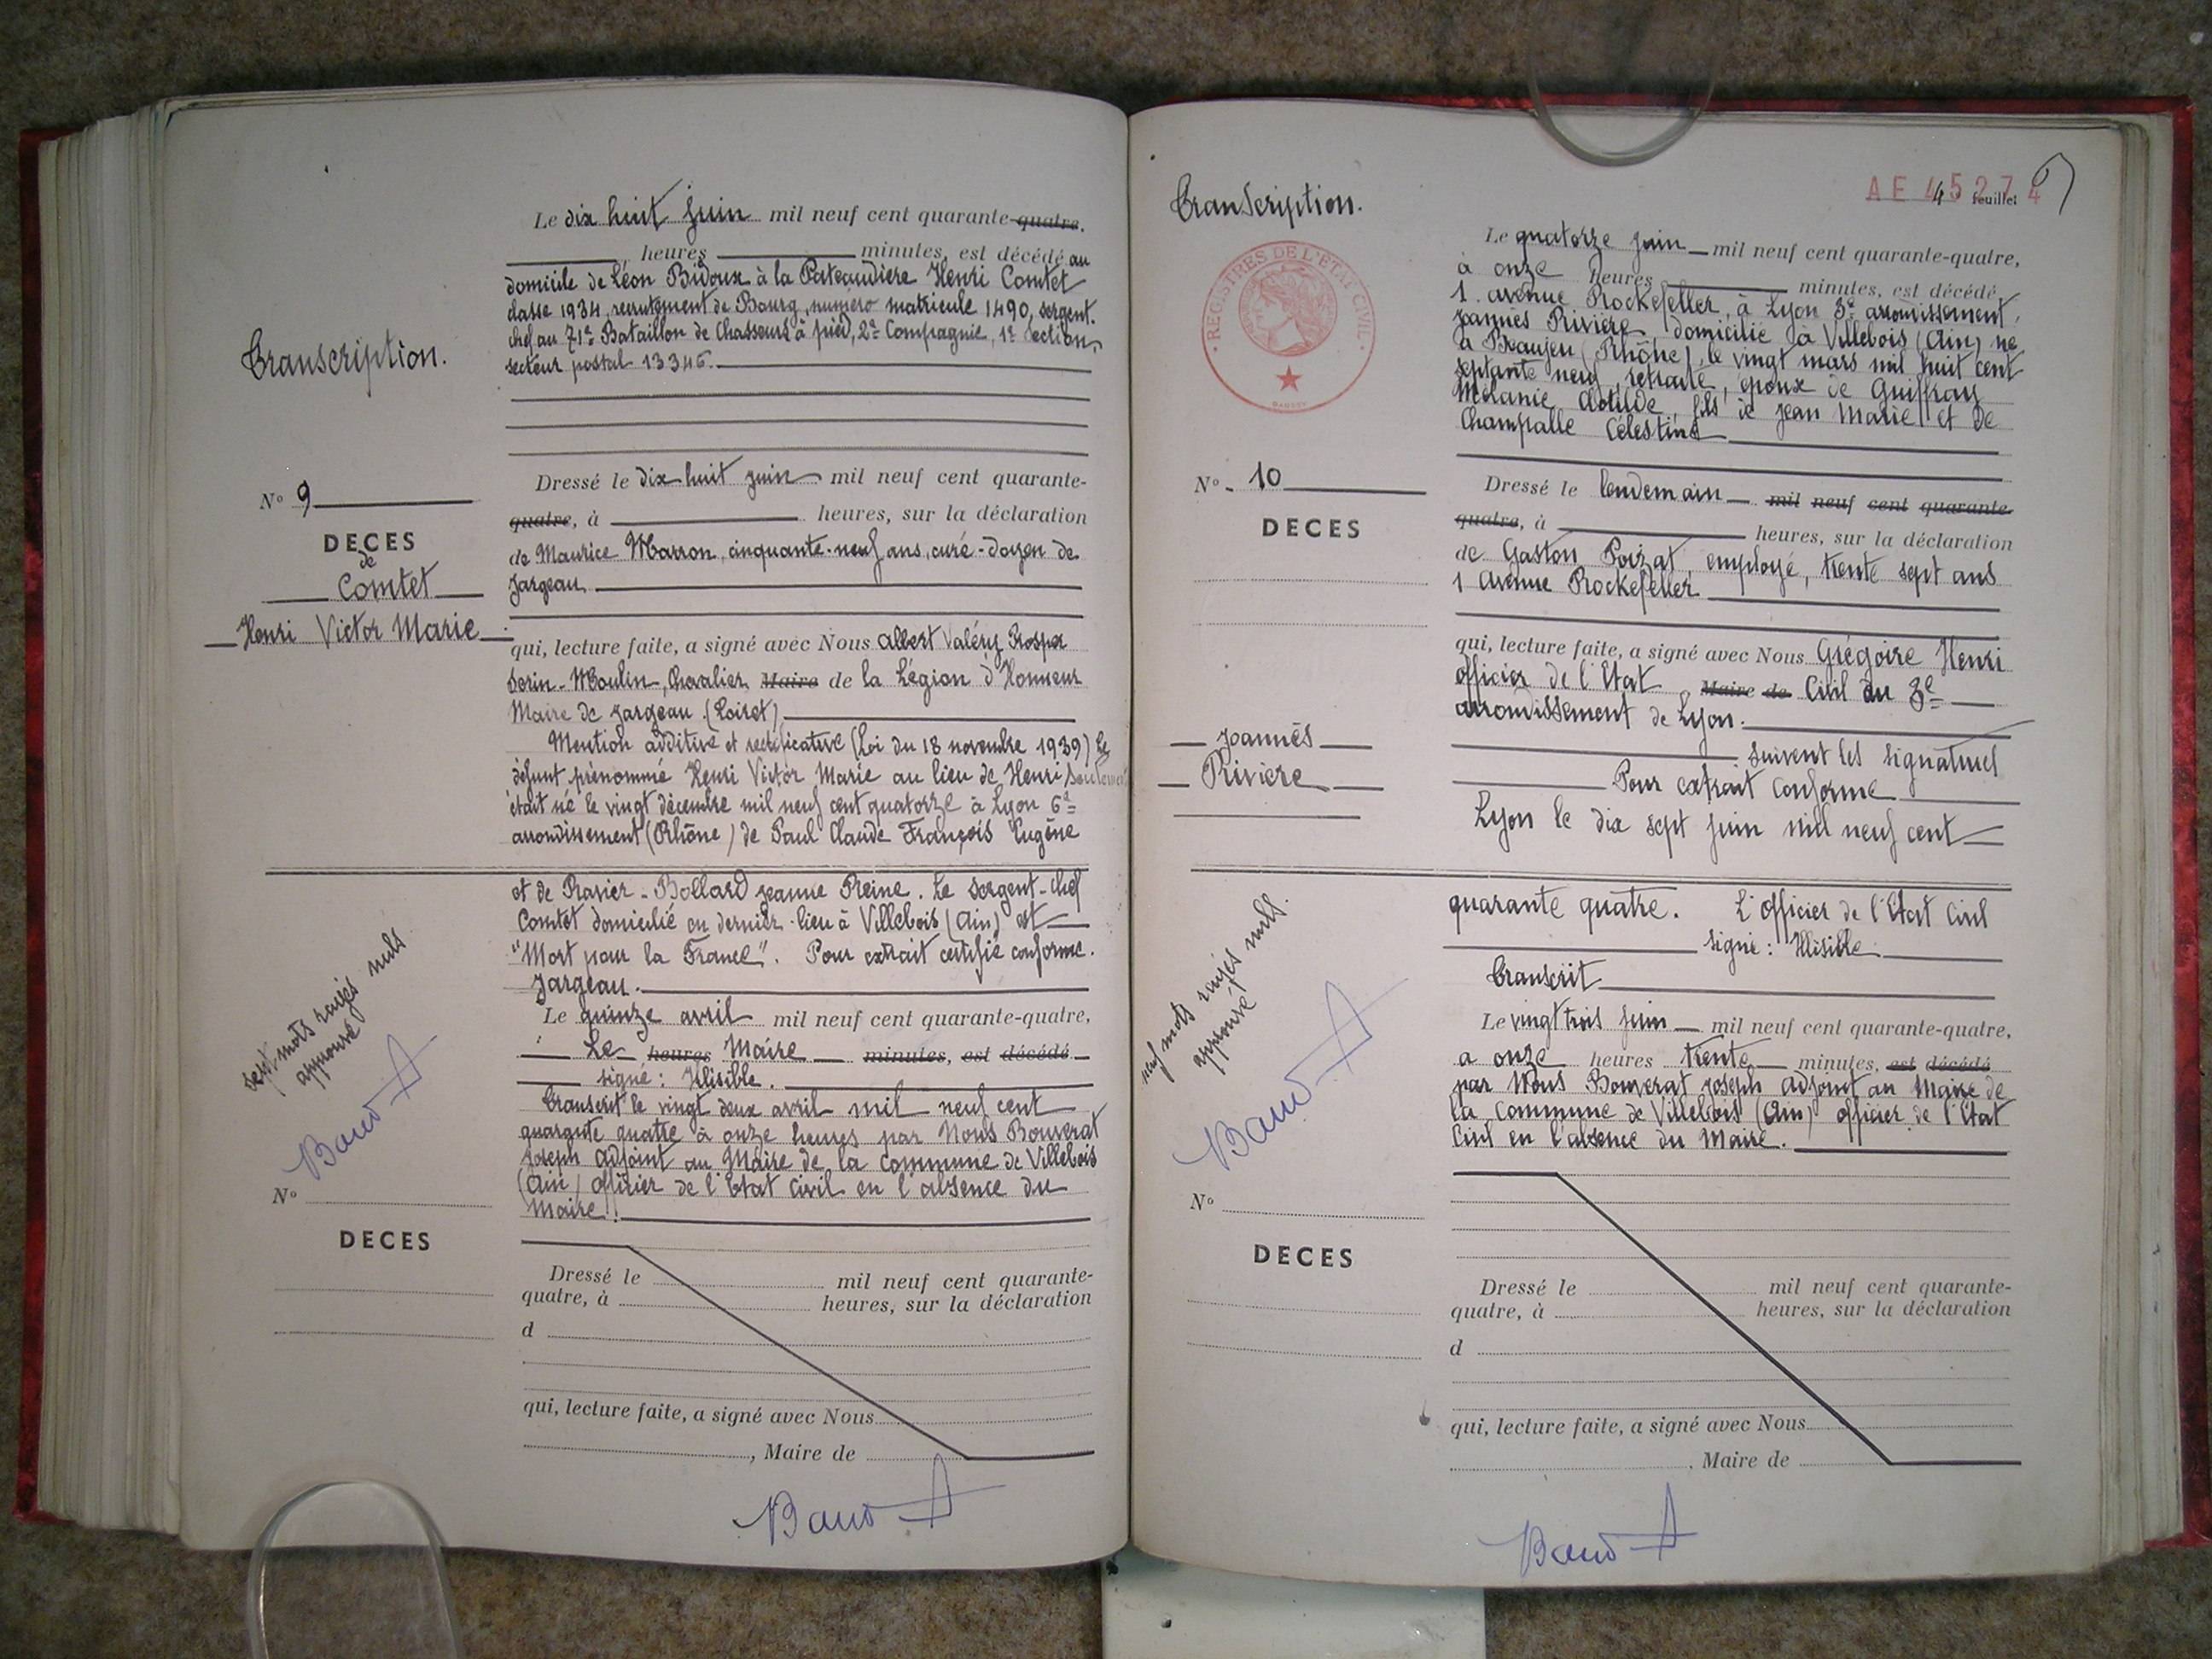 Transcription.
Le dix huit juin mil neuf cent quarante-quatre.
heures minutes, est décédé au
domicile de Léon Bidoux à la Pateaudière Henri Comtet
classe 1934, recrutement de Bourg, numéro matricule 1490, sergent.
chef au 71e Bataillon de Chasseurs à pied, 2e Compagnie, 1e Section,
secteur postal 13346.
N° 9
DECES
de
Comtet
Henri Victor Marie
Dressé le dix-huit juin mil neuf cent quarante-
quatre, à heures, sur la déclaration
de Maurice Marron, cinquante-neuf ans, curé-doyen de
Jargeau
qui, lecture faite, a signé avec Nous Albert Valéry Prosper
Serin-Moulin, Chevalier Maire de la Légion d'Honneur
Maire de Jargeau (Loiret)
Mention additive et rectificative (Loi du 18 novembre 1939) Le
défunt prénommé Henri Victor Marie au lieu de Henri seulement
était né le vingt décembre mil neuf cent quatorze à Lyon 6e
arrondissement (Rhône) de Paul Claude François Eugène
et de Ravier-Bollard Jeanne Reine. Le sergent-chef
Comtet domicilié en dernier lieu à Villebois (Ain) est
"Mort pour la France". Pour extrait certifié conforme.
Jargeau.
Le quinze avril mil neuf cent quarante-quatre,
Le heures Maire minutes, est décédé
signé : Illisible.
Transcrit le vingt deux avril mil neuf cent
quarante quatre à onze heures par Nous Bouverat
Joseph adjoint au Maire de la Commune de Villebois
(Ain) officier de l'Etat Civil en l'absence du
Maire.
sept mots rayés nuls
approuvé
N°
DECES
Dressé le mil neuf cent quarante-
quatre, à heures, sur la déclaration
d
qui, lecture faite, a signé avec Nous
, Maire de
Transcription.
AE 45274
4 feuillet
REGISTRES DE L'ETAT CIVIL
Le quatorze juin mil neuf cent quarante-quatre,
à onze heures minutes, est décédé
1. avenue Rockefeller, à Lyon 3e arrondissement,
Joannès Rivière, domicilié à Villebois (Ain) né
à Beaujeu (Rhône), le vingt mars mil huit cent
septante neuf, retraité, époux de Guiffray
Mélanie Clotilde, fils de Jean Marie et de
Champalle Célestine
N° 10
DECES
Joannès
Rivière
Dressé le lendemain mil neuf cent quarante
quatre, à heures, sur la déclaration
de Gaston Poizat, employé, trente sept ans
1 Avenue Rockefeller
qui, lecture faite, a signé avec Nous Grégoire Henri
officier de l'Etat Maire de Civil du 3e
arrondissement de Lyon.
suivent les signatures
Pour extrait conforme
Lyon le dix sept juin mil neuf cent
quarante quatre. L'officier de l'Etat Civil
signé : Illisible
Transcrit
Le vingt trois juin mil neuf cent quarante-quatre,
à onze heures trente minutes, est décédé
par Nous Bouverat Joseph adjoint au Maire de
la Commune de Villebois (Ain) officier de l'Etat
Civil en l'absence du Maire.
neuf mots rayés nuls.
approuvé
N°
DECES
Dressé le mil neuf cent quarante-
quatre, à heures, sur la déclaration
d
qui, lecture faite, a signé avec Nous
, Maire de